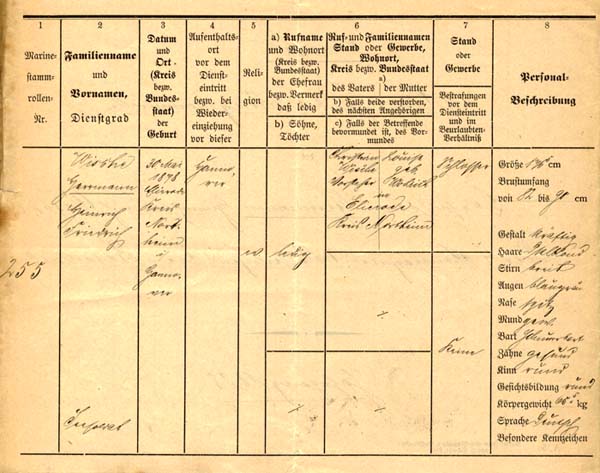 1
Marine-
stamm-
rollen-
Nr.
2
Familienname
und
Vornamen,
Dienstgrad
3
Datum
und
Ort
(Kreis
bezw.
Bundes-
staat)
der
Geburt
4
Aufenthalts-
ort
vor dem
Dienst-
eintritt
bezw. bei
Wieder-
einziehung
vor dieser
5
Reli-
gion
a) Rufname
und Wohnort
(Kreis bezw.
Bundesstaat)
der Ehefrau
bezw. Vermerk
daß ledig
b) Söhne,
Töchter
6
Ruf- und Familiennamen
Stand oder Gewerbe,
Wohnort,
Kreis bezw. Bundesstaat
a)
des Vaters
der Mutter
b) Falls beide verstorben,
des nächsten Angehörigen
c) Falls der Betreffende
bevormundet ist, des Vor-
mundes
7
Stand
oder
Gewerbe
Bestrafungen
vor dem
Diensteintritt
und im
Beurlaubten-
Verhältniß
8
Personal-
Beschreibung
255
Hermann
Heinrich
Friedrich
30 Mai
1878
Kreis
Nort-
heim
Hanno-
ver
Hanno-
ver
ledig
Christian
Louise
geb.
Kreis Northeim
Schlosser
Keine
Größe cm
Brustumfang
von 82 bis 90 cm
Gestalt kräftig
Haare
Stirn breit
Augen blaugrau
Nase spitz
Mund gew.
Bart
Zähne gesund
Kinn rund
Gesichtsbildung rund
Körpergewicht kg
Sprache Deutsch
Besondere Kennzeichen